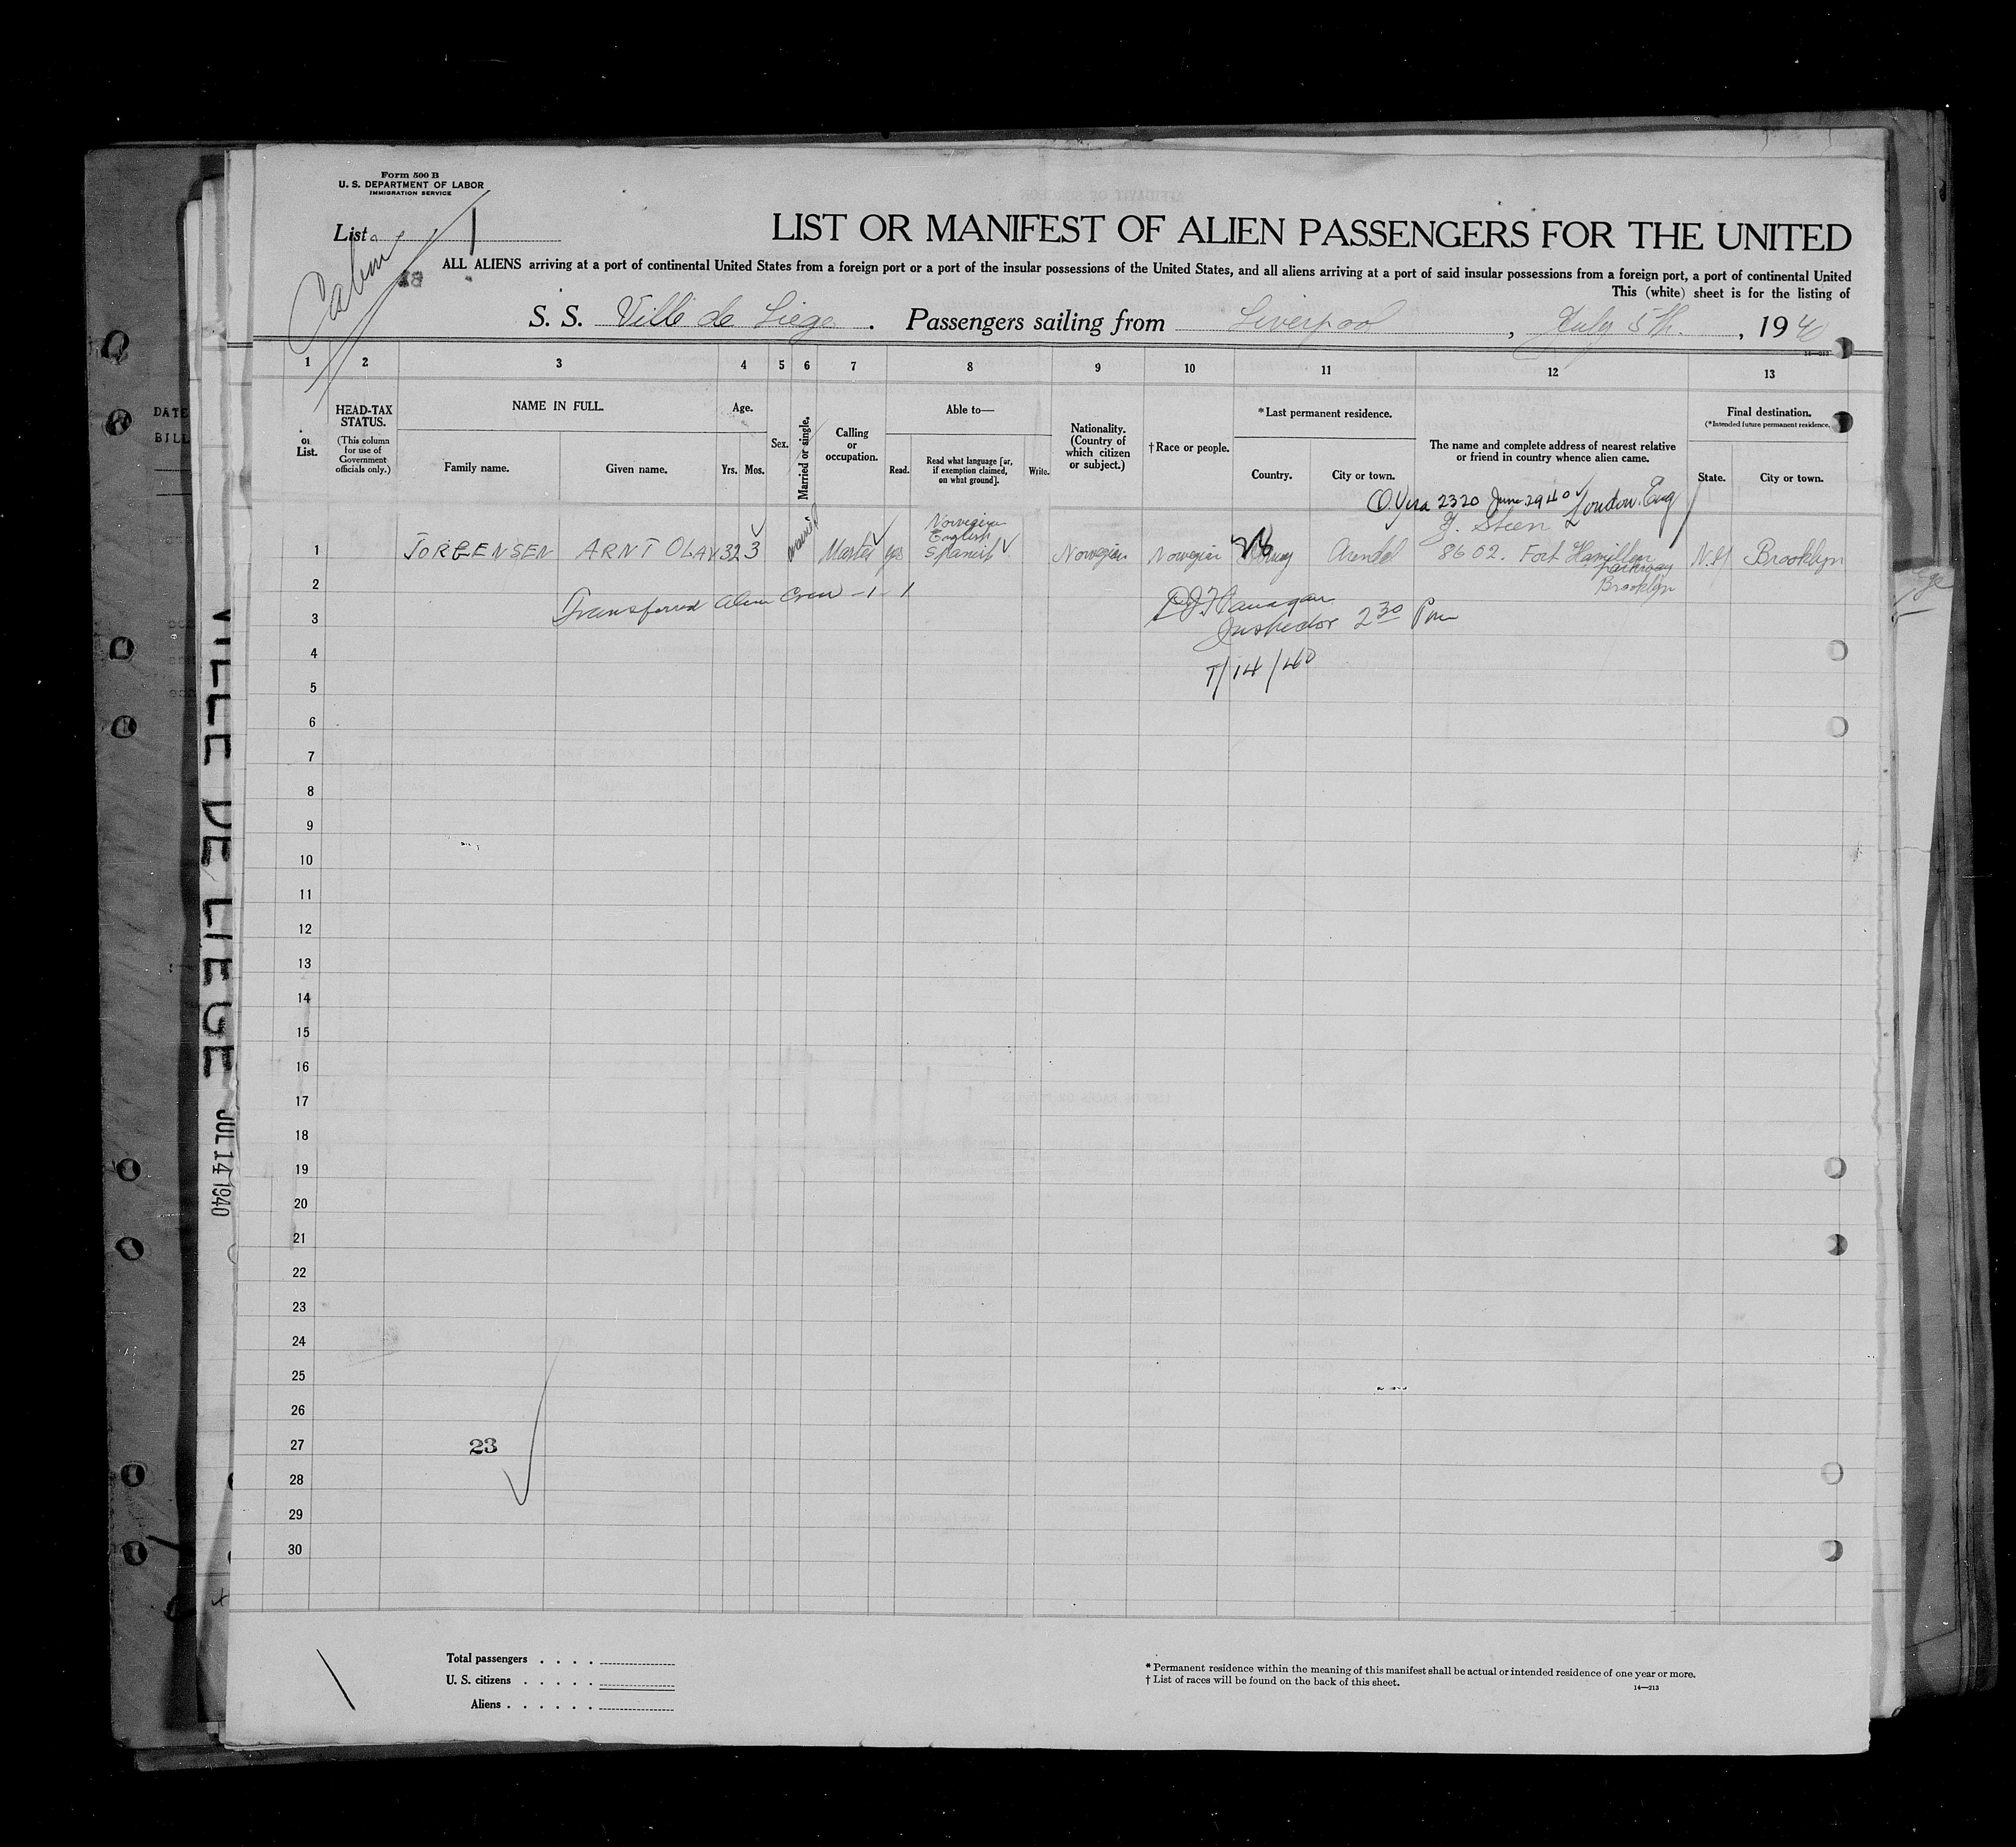 Form 500 B
U. S. DEPARTMENT OF LABOR
IMMIGRATION SERVICE
List 1
Cabin
LIST OR MANIFEST OF ALIEN PASSENGERS FOR THE UNITED
ALL ALIENS arriving at a port of continental United States from a foreign port or a port of the insular possessions of the United States, and all aliens arriving at a port of said insular possessions from a foreign port, a port of continental United
This (white) sheet is for the listing of
S. S. Ville de Liege. Passengers sailing from Liverpool, July 5th., 1940
14—213
1 2 3 4 5 6 7 8 9 10 11 12 13
HEAD-TAX STATUS.
(This column for use of Government officials only.)
NAME IN FULL.
Family name.
Given name.
Age.
Yrs. Mos.
Sex.
Married or single.
Calling or occupation.
Able to—
Read.
Read what language [or, if exemption claimed, on what ground].
Write.
Nationality. (Country of which citizen or subject.)
† Race or people.
* Last permanent residence.
Country.
City or town.
The name and complete address of nearest relative or friend in country whence alien came.
Final destination.
(* Intended future permanent residence.)
State.
City or town.
on List.
2320 June 29 40 London. Eng
1 JORGENSEN ARNT OLAV 32 3 Master yes Norwegian English Spanish Norwegian Norwegian Norway Arendal J. Steen 8602. Fort Hamilton Parkway Brooklyn N.Y Brooklyn
2
Transferred Alien Crew -1- 1
3
Inspector 2 30 Pm
4
7/14/40
5
6
7
8
9
10
11
12
13
14
15
16
17
18
19
20
21
22
23
24
25
26
27
23
28
29
30
Total passengers
U. S. citizens
Aliens
* Permanent residence within the meaning of this manifest shall be actual or intended residence of one year or more.
† List of races will be found on the back of this sheet.
14—213
VILLE DE LIEGE JUL 14 1940
DATE
BILL